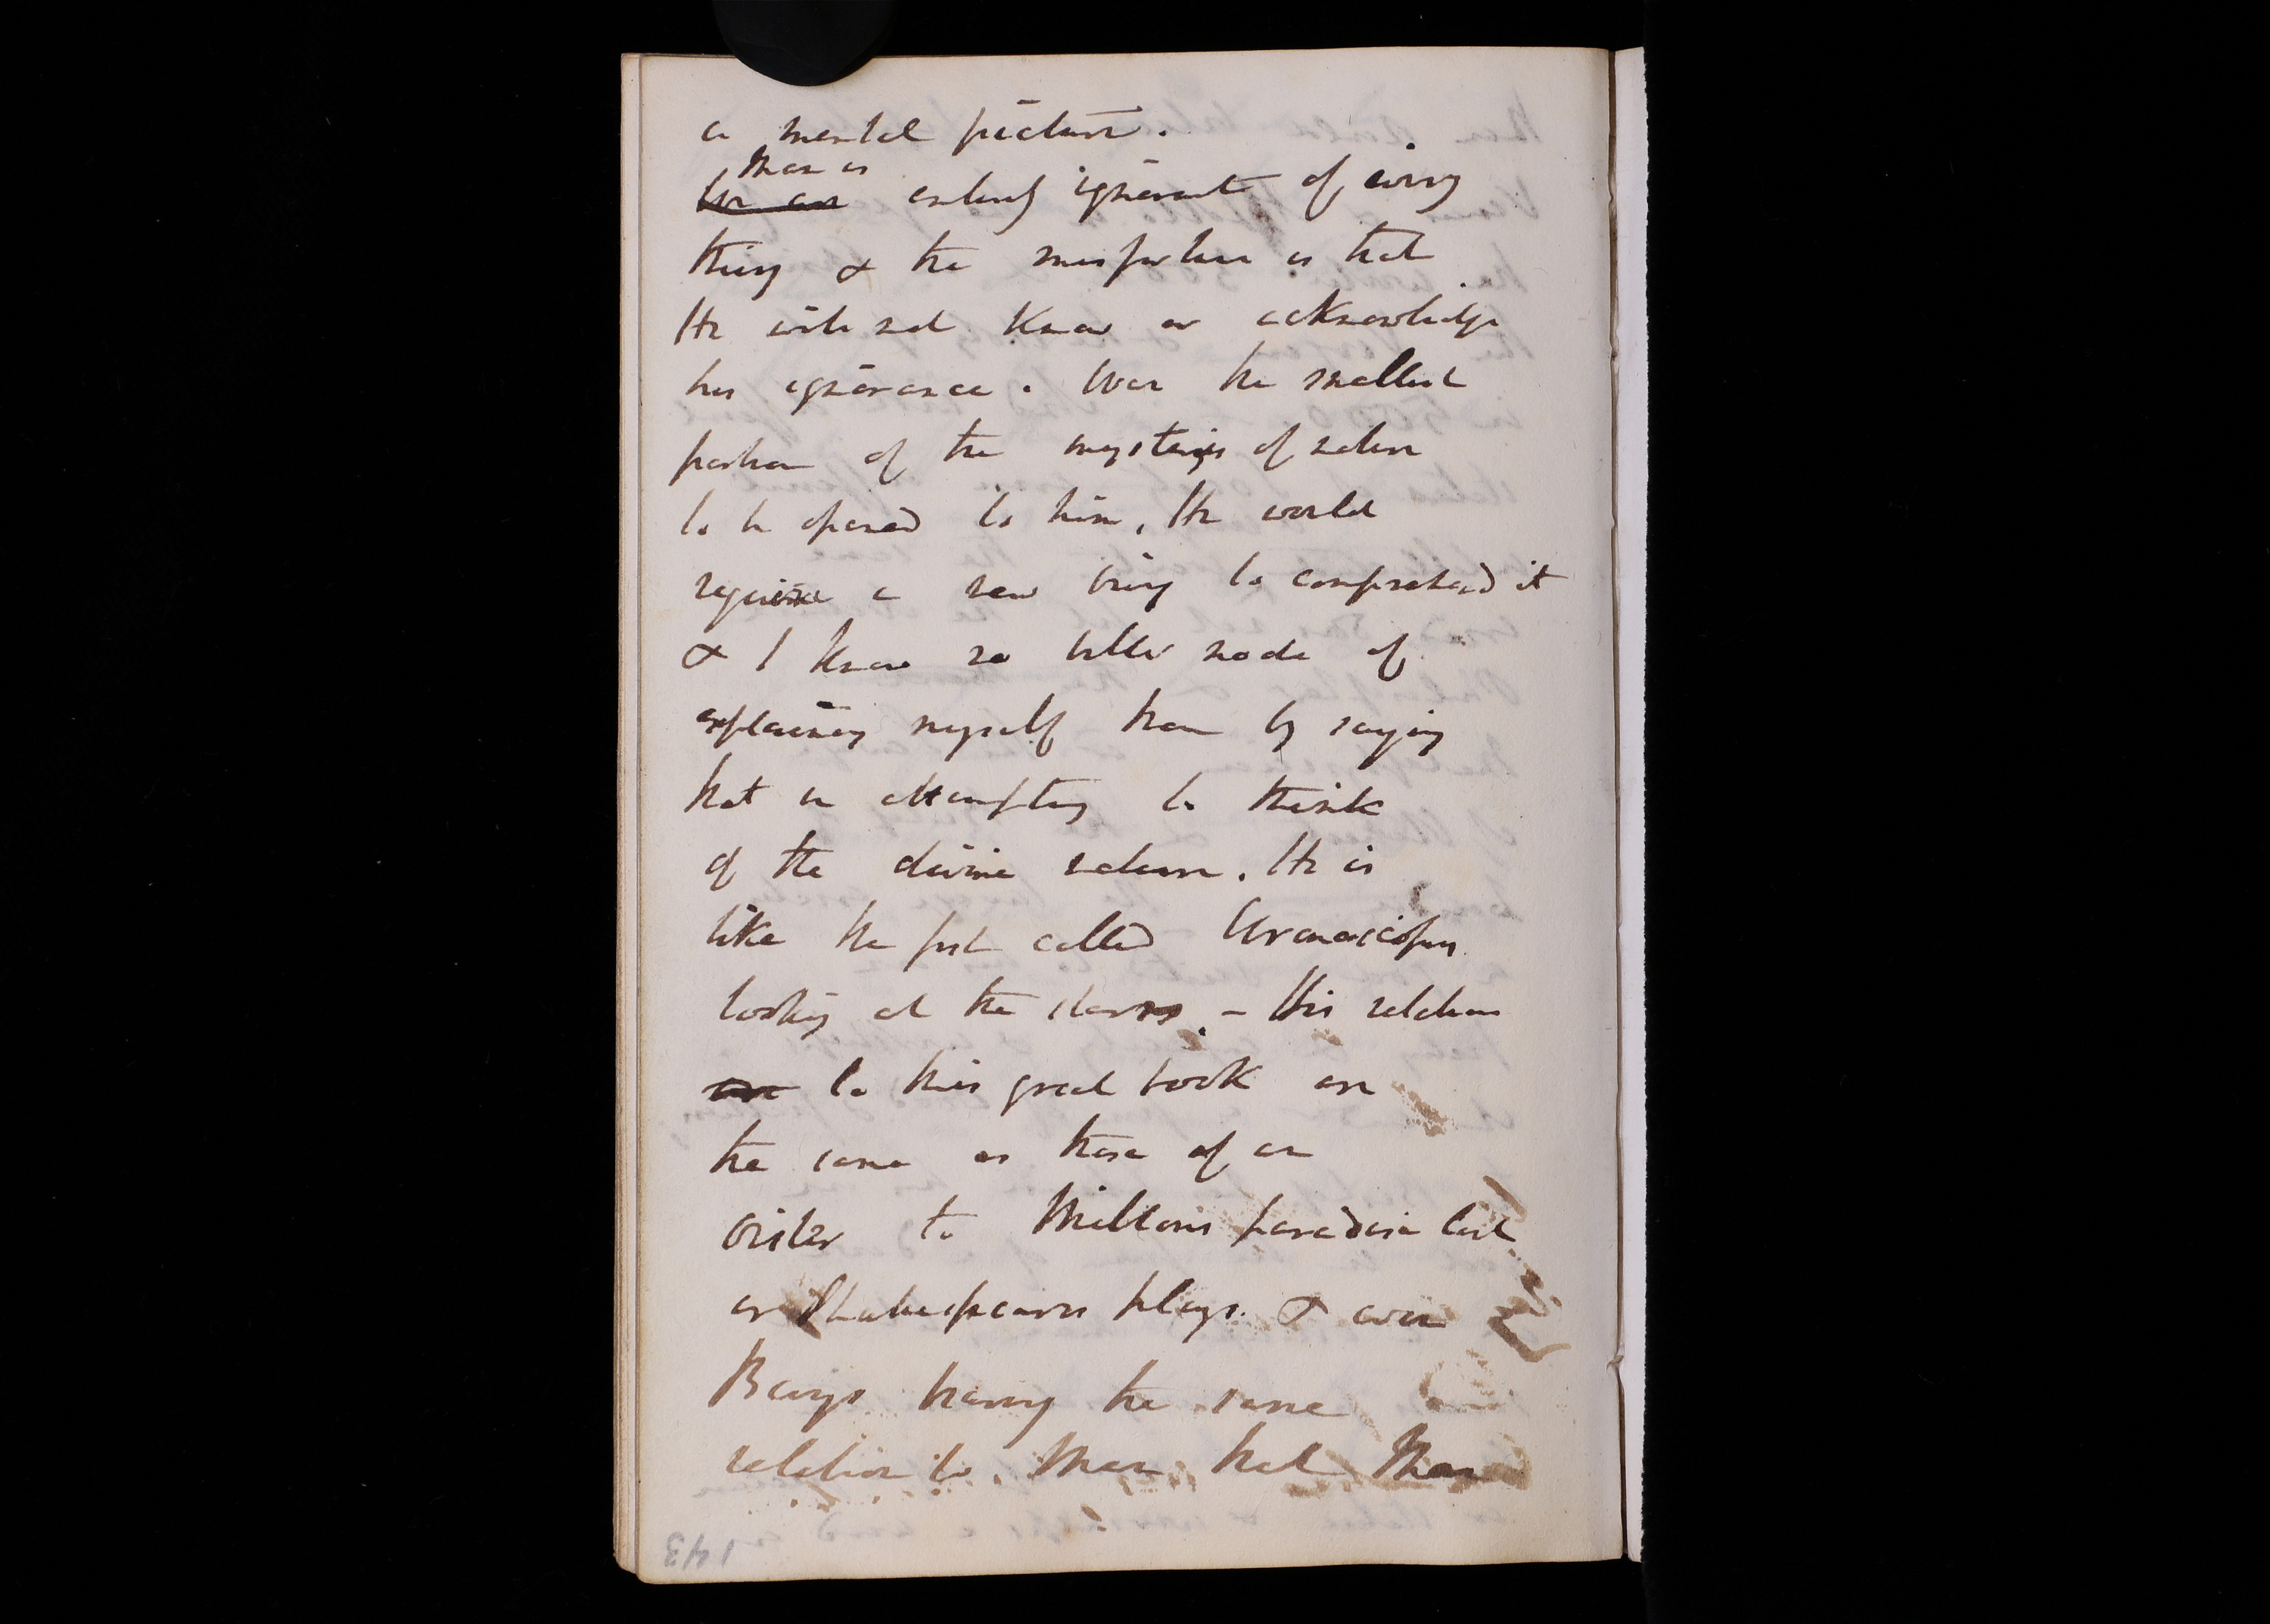 a mental picture.
Man is
We are entirely ignorant of every
thing & the misfortune is that
He will not know or acknowledge
his ignorance. Were the smallest
portion of the mysteries of nature
to be opened to him, He would
require a new being to comprehend it
& I know no better mode of
explaining myself than by saying
that in attempting to think
of the divine nature. He is
like the fish called Uranoscopus
looking at the stars. - His relations
are to this great book are
the same as those of an
Oister to Miltons paradise lost
or Shakespeares plays. & even
Beings having the same
relation to Man that Man
143